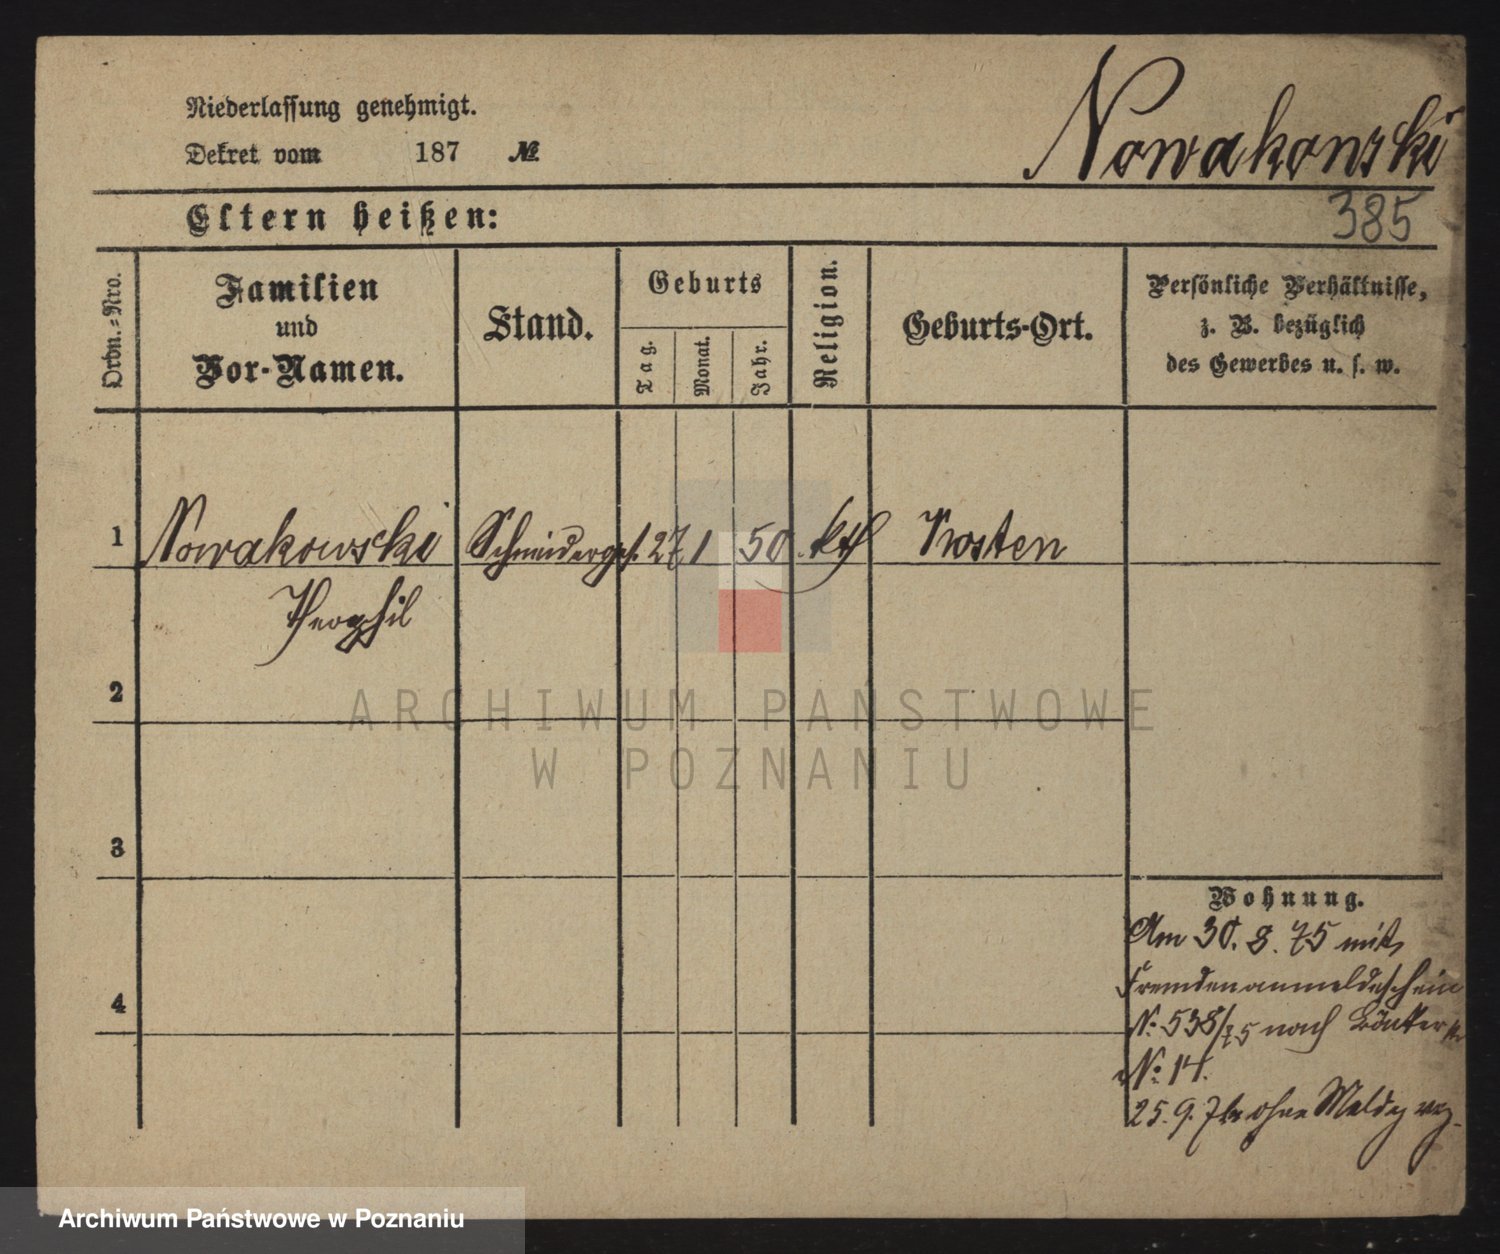 Niederlassung genehmigt.
Dekret vom 187 №
Nowakowski
385
Eltern heißen:
Ordn.=Nro.
Familien
und
Vor-Namen.
Stand.
Geburts
Tag.
Monat.
Jahr.
Religion.
Geburts-Ort.
Persönliche Verhältnisse,
z. B. bezüglich
des Gewerbes u. s. w.
1 Nowakowski Schneiderges. 27 1 50 kth Kosten
Theophil
2
3
4
Wohnung.
Am 30. 8. 75 mit
Fremdenanmeldeschein
№ 538/75 nach
№ 14.
25. 9. ohne Meldg
ARCHIWUM PAŃSTWOWE
W POZNANIU
Archiwum Państwowe w Poznaniu